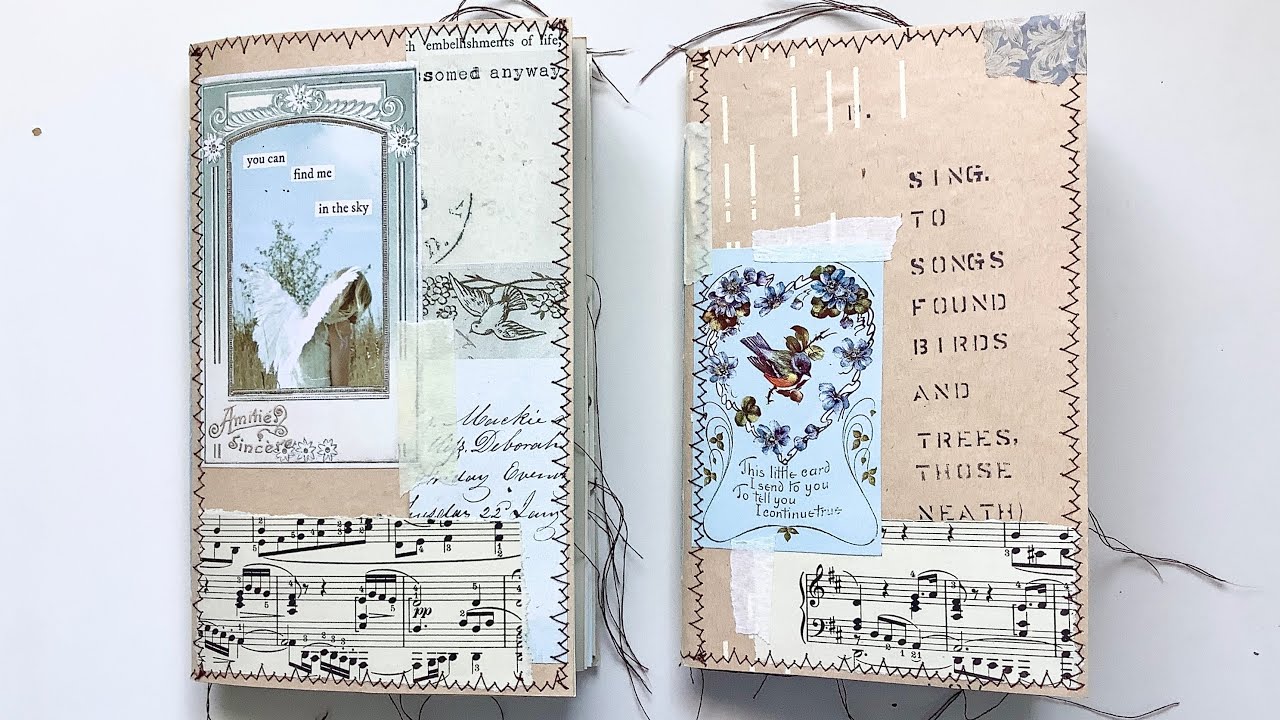 embellishments of life
somed anyway
you can
find me
in the sky
Amitiés
Sincères
Mackie
Deborah
22 Jany
SING.
TO
SONGS
FOUND
BIRDS
AND
TREES,
THOSE
NEATH)
This little card
I send to you
To tell you
I continue true